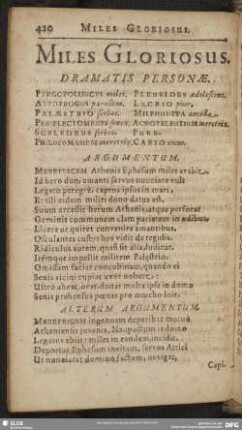 420 MILES GLORIOSUS.
MILES GLORIOSUS.
DRAMATIS PERSONÆ.
PYRGOPOLINICES miles. PLEUSIDES adolescens.
ARTOTROGUS parasitus. LUCRIO puer.
PALÆSTRIO servus. MILPHIDIPPA ancilla.
PERIPLECTOMENES senex. ACROTELEUTIUM meretrix.
SCELEDRUS servus. PUER.
PHILOCOMASIUM meretrix. CARIO cocus.
ARGUMENTUM.
MERETRICEM Athenis Ephesum miles avehit.
Id dum amanti servus nuntiare vult
Legato peregre, captus ipse in mari,
Et illi eidem militi dono datus est.
Suum arcessit herum Athenis, atque
Geminis communem clam parietem in ædibus.
Licere ut quiret convenire amantibus.
Osculantes custos hos vidit de
Ridiculus autem, quasi sit alia, luditur.
Itemque impellit militem Palæstrio.
Omissam faciat concubinam, quando ei
Senis vicini cupiat uxor nubere.
Ultro abeat, orat, donat multa ipse in domo
Senis prehensus pœnas pro mœcho luit.
ALTERUM ARGUMENTUM.
MERETRICEM ingenuam deperibat mutuo
Atheniensis juvenis, Naupactum is domo
Legatus abiit: miles in eandem incidit.
Deportat Ephesum invitam, servus Attici
Ut nuntiaret domino factum, navigat,
Capi-